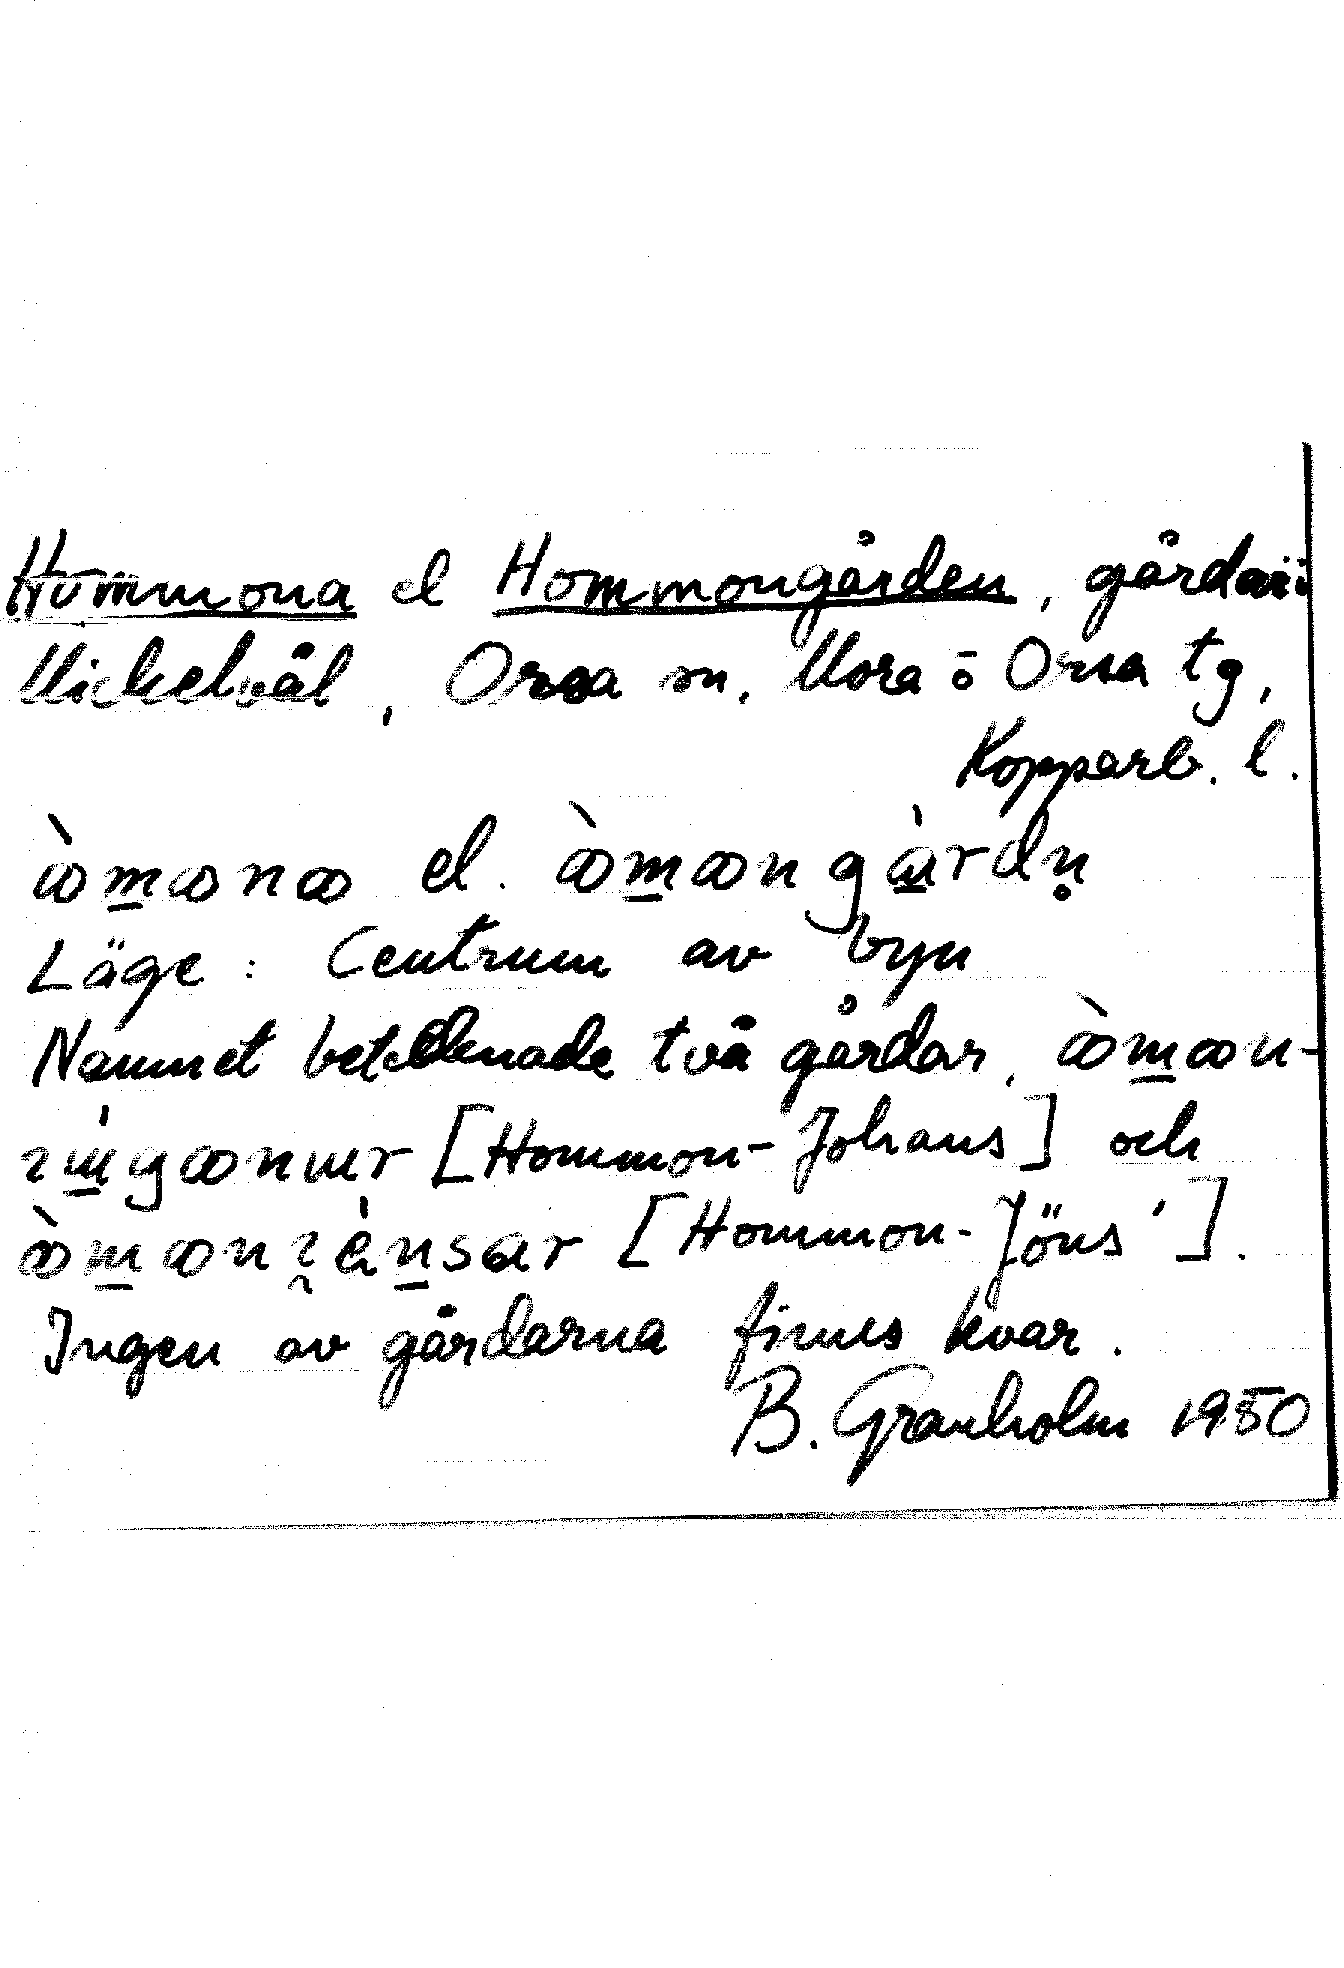 Hommona el Hommongården, gårdar i
Mickelvål, Orsa sn. Mora o Orsa tg,
Kopparb. l.
el.
Läge: Centrum av byn
Namnet betecknade två gårdar,
[Hommon-Johans] och
[Hommon-Jöns'].
Ingen av gårdarna finnes kvar.
B. Granholm 1950